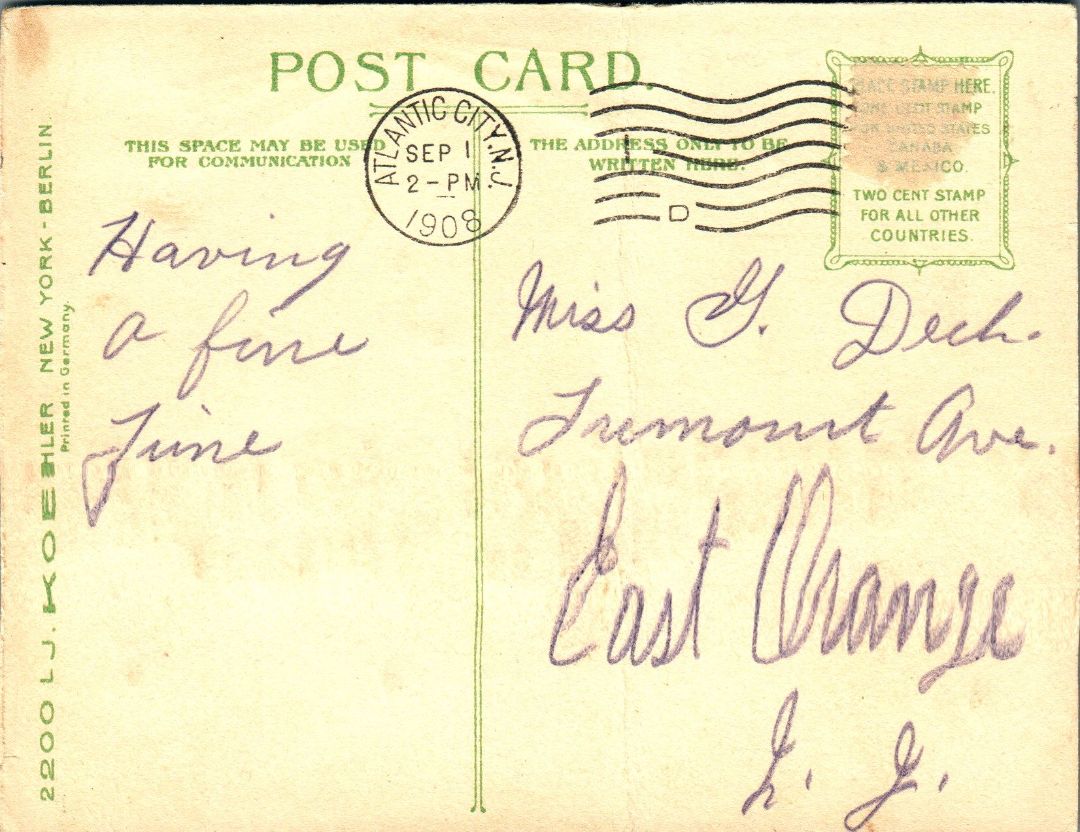 POST CARD.
THIS SPACE MAY BE USED
FOR COMMUNICATION
THE ADDRESS ONLY TO BE
WRITTEN HERE.
PLACE STAMP HERE.
ONE CENT STAMP
FOR UNITED STATES
CANADA
& MEXICO.
TWO CENT STAMP
FOR ALL OTHER
COUNTRIES.
ATLANTIC CITY, N.J.
SEP 1
2-PM
1908
D
Having
a fine
Time
Miss G.
Tremount Ave.
East Orange
N. J.
2200 L J. KOEHLER NEW YORK - BERLIN.
Printed in Germany.